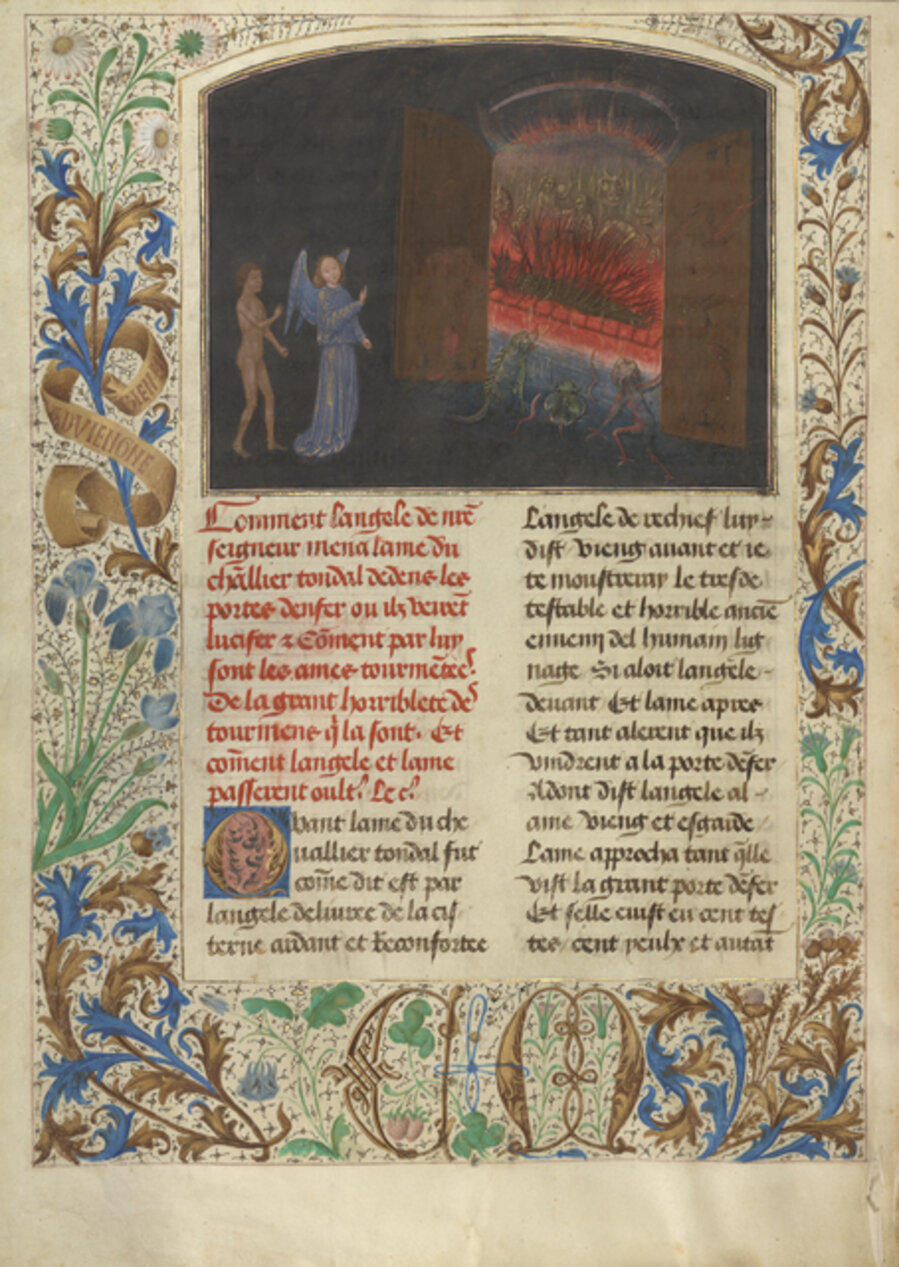 AVIENGNE
BIEN
Comment langele de nr̄e
seigneur mena lame du
chl̄lier tondal dedens les
portes denfer ou ilz veirēt
lucifer ⁊ Cōment par luy
sont les ames tourmētees
De la grant horriblete des
tourmens q̄ la sont. Et
cōment langele et lame
passerent oultˢ. Le cˢ
Qvant lame du che
uallier tondal fut
cōme dit est par
langele deliuree de la cis
terne ardant et Reconfortee
Langele de rechief luy
dist vieng auant et ie
te moustreray le tres de
testable et horrible anciē
ennemy del humain lig
nage Si aloit langele
deuant Et lame apres
Et tant alerent que ilz
vindrent a la porte dēfer
Adont dist langele al
ame vieng et esgarde
Lame approcha tant q̄lle
vist la grant porte dēfer
Et selle euist eu cent tes
tes cent yeulx et autāt
C M